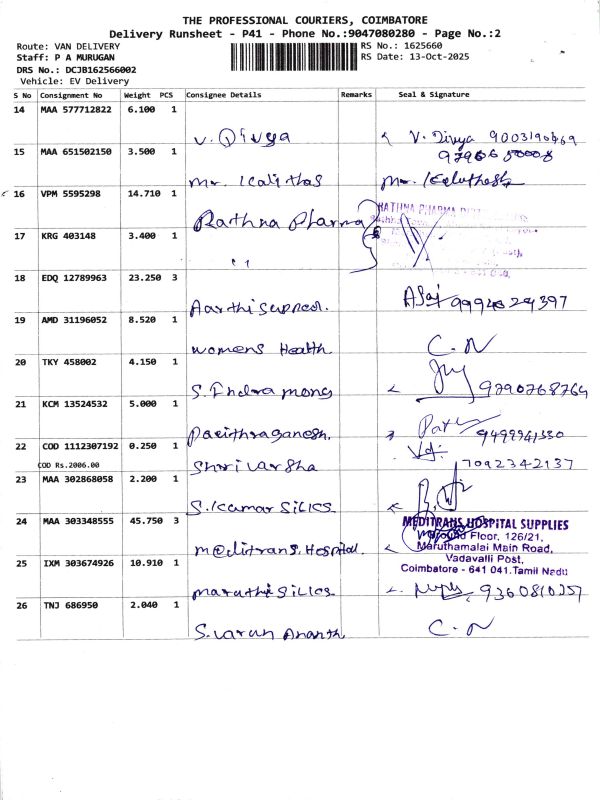 THE PROFESSIONAL COURIERS, COIMBATORE
Delivery Runsheet - P41 - Phone No.:9047080280 - Page No.:2
Route: VAN DELIVERY RS No.: 1625660
Staff: P A MURUGAN RS Date: 13-Oct-2025
DRS No.: DCJB162566002
Vehicle: EV Delivery
S No Consignment No Weight PCS Consignee Details Remarks Seal & Signature
14 MAA 577712822 6.100 1
V. Divya V. Divya
15 MAA 651502150 3.500 1
Mr. Kalithas Mr.
16 VPM 5595298 14.710 1
Rathna Pharma RATHNA PHARMA
17 KRG 403148 3.400 1
" 
18 EDQ 12789963 23.250 3
Aarthi 9994624397
19 AMD 31196052 8.520 1
Womens Health C.N
20 TKY 458002 4.150 1
S. Indra mong 9790768764
21 KCM 13524532 5.000 1
Pavithraganesh. 9499941330
22 COD 1112307192 0.250 1
COD Rs.2006.00
Shri Varsha 7092342137
23 MAA 302868058 2.200 1
S. Kumar Silks
24 MAA 303348555 45.750 3
MEDITRANS HOSPITAL SUPPLIES
Ground Floor, 126/21,
Meditrans. Hospital. Maruthamalai Main Road,
Vadavalli Post,
Coimbatore - 641 041.Tamil Nadu
25 IXM 303674926 10.910 1
Maruthi Silks 9360810257
26 TNJ 686950 2.040 1
S. Varun Ananth C.N